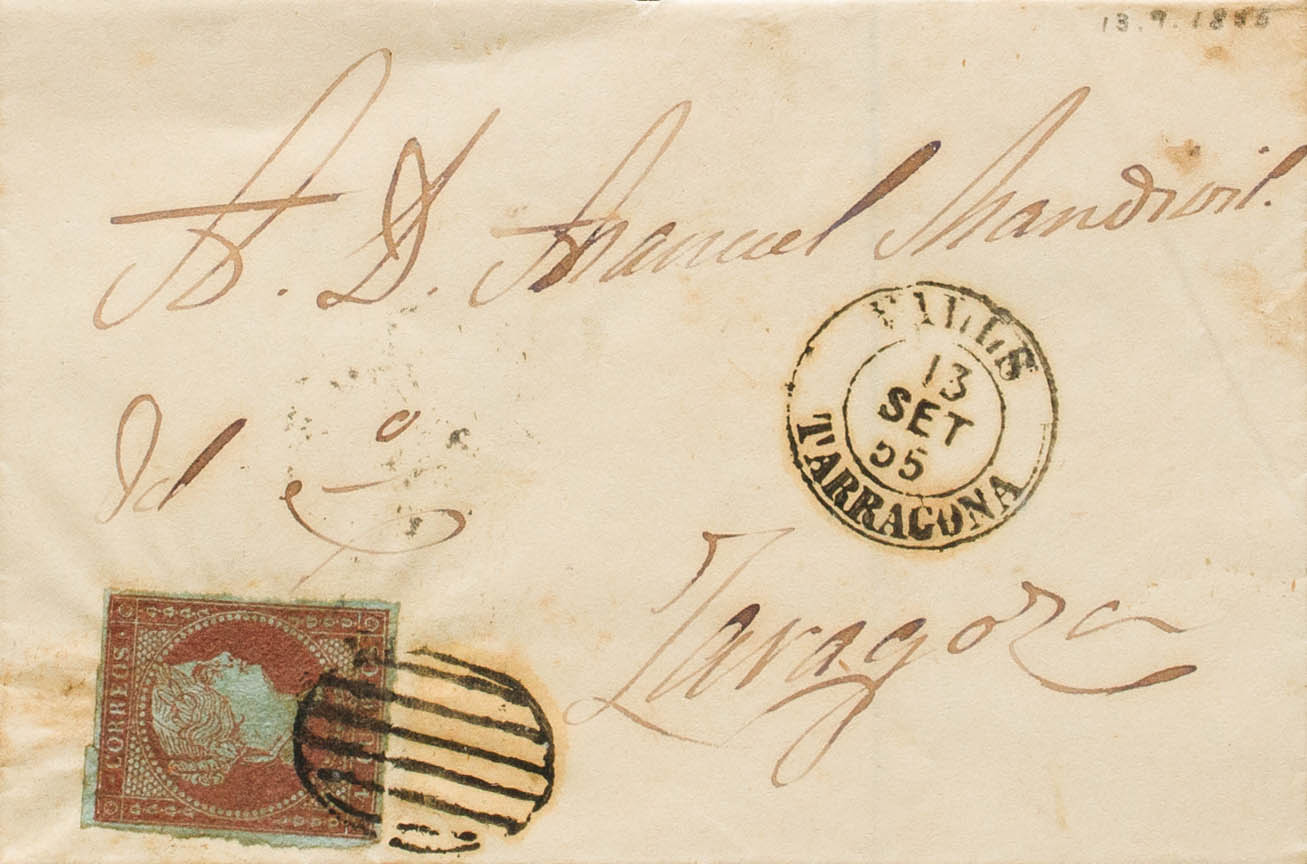 13.9.1855
A. D. Manuel Mandivil.
VALLS
13
SET
55
TARRAGONA
Zaragoza
CORREOS.